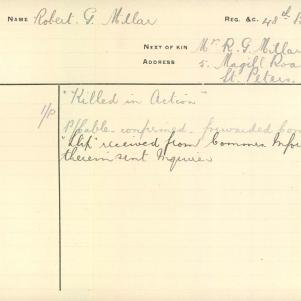 NAME Robert G. Millar REG. &C. 48th B
NEXT OF KIN Mr R. G. Millar
ADDRESS 5. Magill Roa
St. Peters
"Killed in Action"
1/P
P/pable confirmed forwarded
"Slip" received from Common Infor
therein sent Inquirer